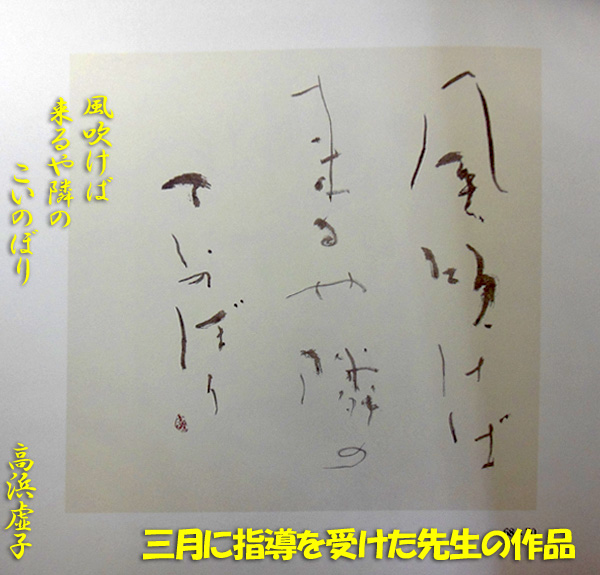 風吹けば
来るや隣の
こいのぼり
風吹けば
来るや隣の
こいのぼり
高浜虚子
三月に指導を受けた先生の作品